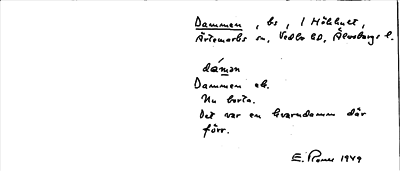 Dammen, bs, i Hökhult,
Ärtemarks sn, Vedbo hd, Älvsborgs l.
dámən
Dammen ak.
Nu borta.
Det var en kvarndamm där
förr.
E. 1949